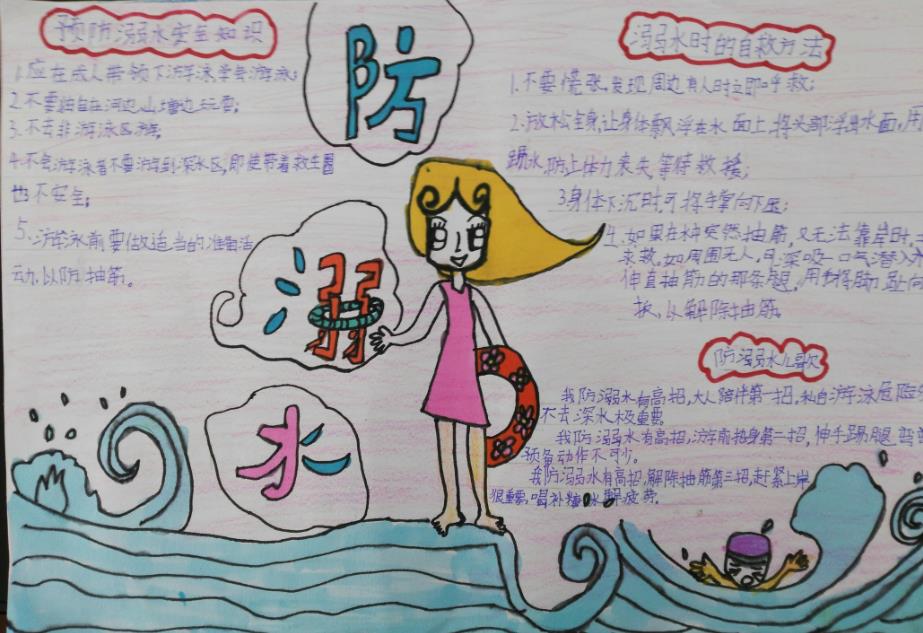 预防溺水安全知识
1.应在成人带领下游泳学会游泳;
2.不要独自在河边山塘边玩耍;
3.不去非游泳区游;
4.不会游泳者不要游到深水区,即使带着救生圈
也不安全;
5.游泳前要做适当的准备活
动,以防抽筋。
防
溺
水
溺水时的自救方法
1.不要慌张,发现周边有人时立即呼救;
2.放松全身,让身体飘浮在水面上,将头部浮出水面,用
踢水,防止体力丧失,等待救援;
3.身体下沉时,可将手掌向下压;
4.如果在水中突然抽筋,又无法靠岸时,
求救,如周围无人,可深吸一口气潜入水
伸直抽筋的那条腿,用手将脚趾向
扳,以解除抽筋。
防溺水儿歌
我防溺水有高招,大人陪伴第一招,私自游泳危险
不去深水极重要
我防溺水有高招,游前热身第二招,伸手踢腿弯
预备动作不可少。
我防溺水有高招,解除抽筋第三招,赶紧上岸
很重要,喝补糖水解疲劳.